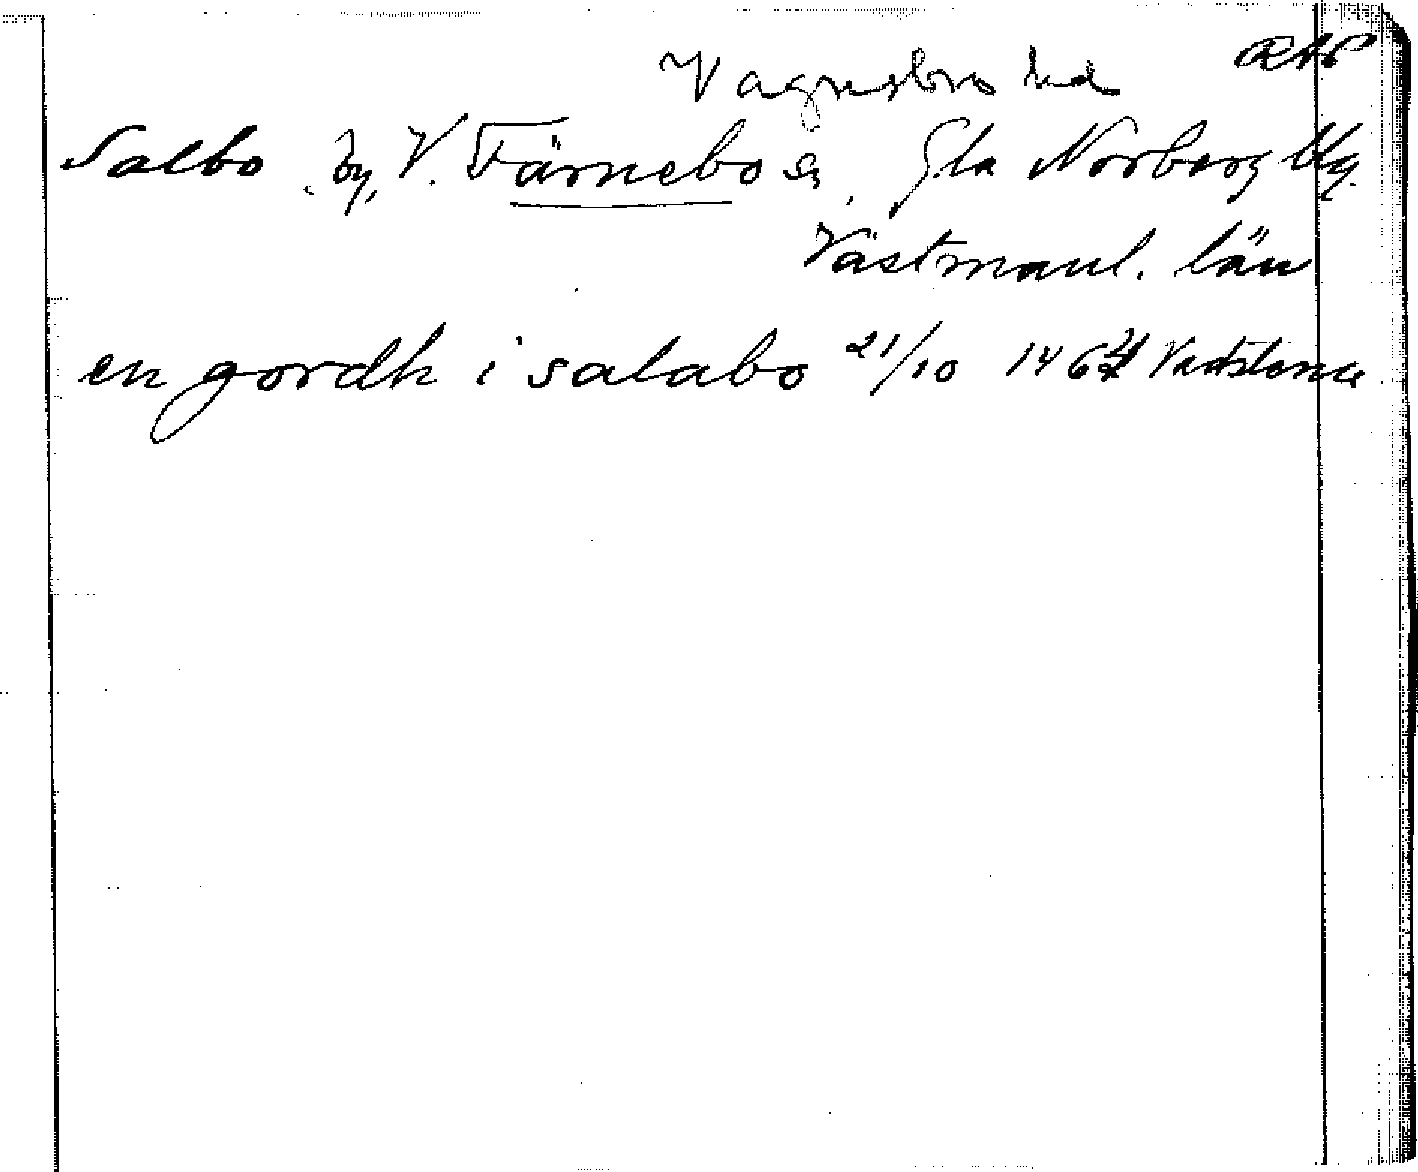 Vagnsbro hd
Salbo by, V. Färnebo sn, Gla Norberg
Västmanl. län
en gordh i salabo 21/10 1464 Vadstena